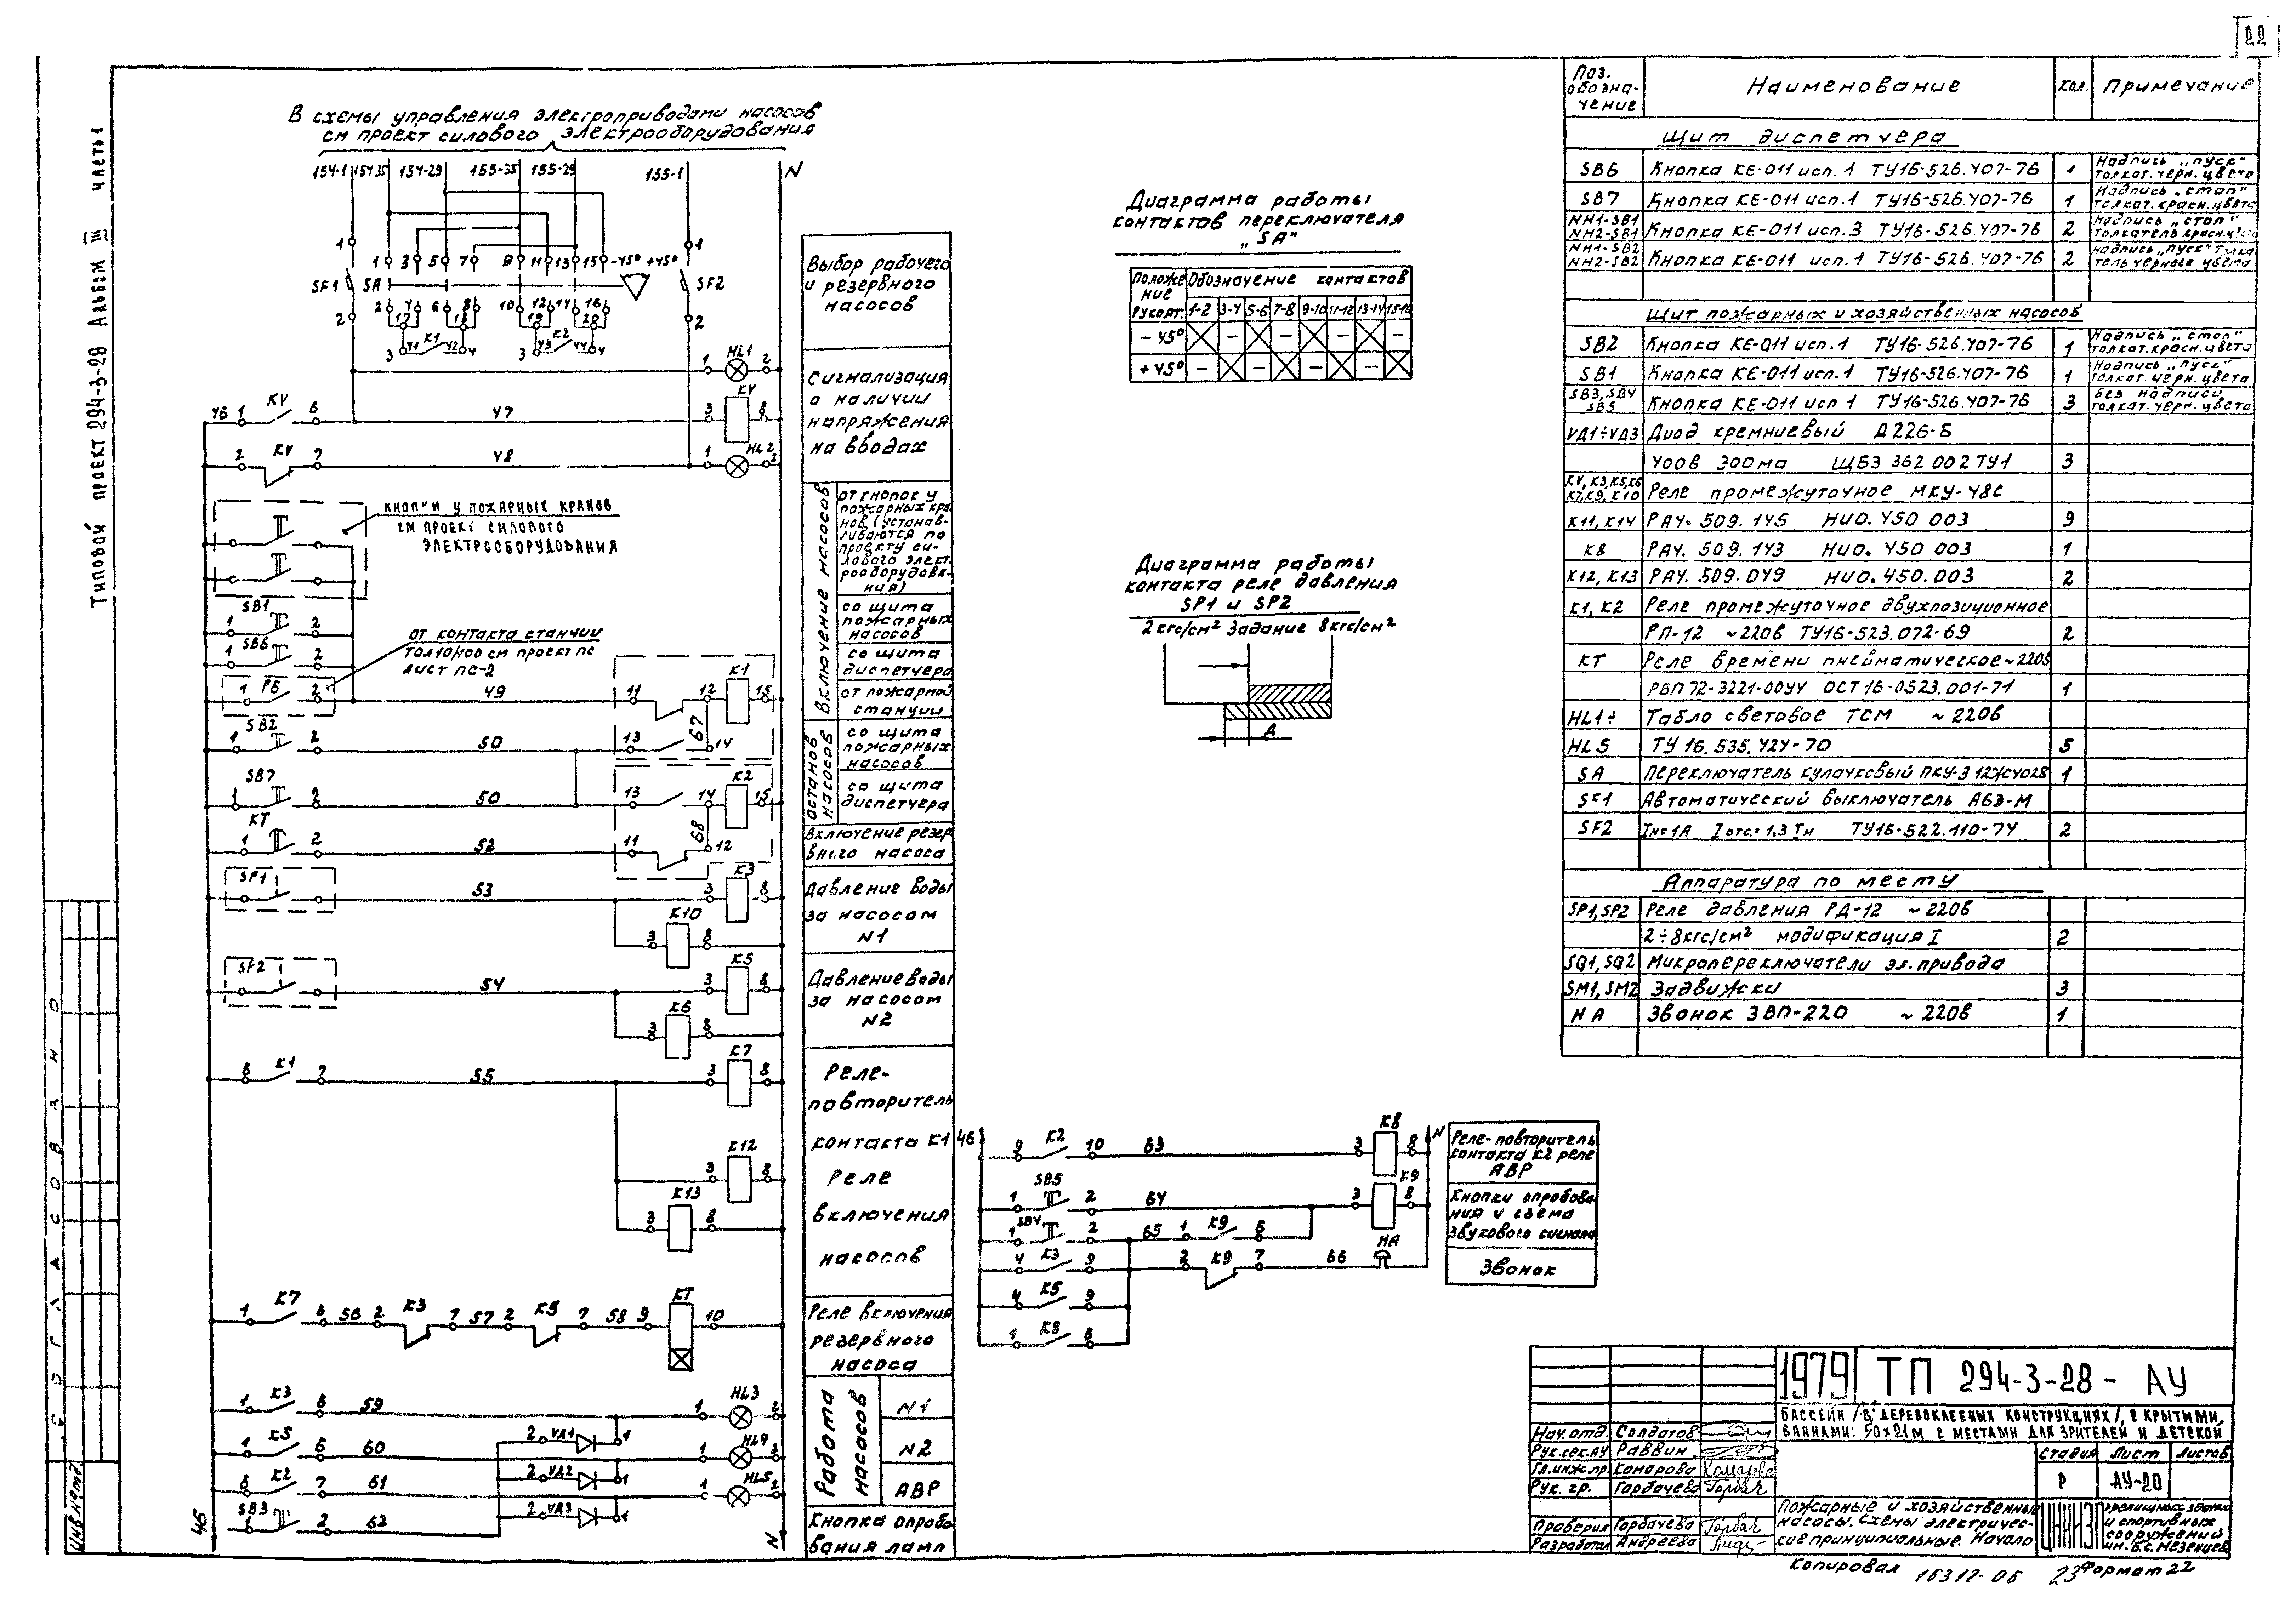 22
Типовой проект 294-3-28 Альбом III часть 1
В схемы управления электроприводами насосов
см проект силового электрооборудования
154-1 154-35 154-29 155-35 155-29 155-1 N
1 1
1 3 5 7 9 11 13 15 -45° +45°
SF1 SA SF2
2 4 6 8 10 12 14 16
2 17 18 19 20 2
3 41 K1 42 4 3 43 K2 44 4
1 HL1 2
46 1 KV 6 47 3 KV 8
2 KV 7 48 1 HL2 2
Кнопки у пожарных кранов
см проект силового
электрооборудования
SB1
1 2
SB6
1 2
от контакта станции
ТОЛ10/100 см проект ПС
лист ПС-2
1 Р6 2 49 11 12 K1 15
SB2
1 2 50 13 67 14
SB7
1 2 50 13 14 K2 15
KT
1 2 52 11 68 12
SP1 53 3 K3 8
3 K10 8
SP2 54 3 K5 8
3 K6 8
6 K1 7 55 3 K7 8
3 K12 8
3 K13 8
1 K7 6 56 2 K3 7 57 2 K5 7 58 9 KT 10
1 K3 6 59 1 HL3 2
2 VД1 1
1 K5 6 60 1 HL4 2
2 VД2 1
6 K2 7 61 1 HL5 2
SB3 2 VД3 1
1 2 62
46 N
Выбор рабочего
и резервного
насосов
Сигнализация
о наличии
напряжения
на вводах
Включение насосов
от кнопок у
пожарных кра-
нов (устанав-
ливаются по
проекту си-
лового элект-
рооборудова-
ния)
со щита
пожарных
насосов
со щита
диспетчера
от пожарной
станции
Останов насосов
со щита
пожарных
насосов
со щита
диспетчера
Включение резер
вного насоса
Давление воды
за насосом
N1
Давление воды
за насосом
N2
Реле-
повторитель
контакта K1
Реле
включения
насосов
Реле включения
резервного
насоса
Работа насосов
N1
N2
АВР
Кнопка опробо
вания ламп
Диаграмма работы
контактов переключателя
„SA"
Положе
ние
рукоят. Обозначение контактов
1-2 3-4 5-6 7-8 9-10 11-12 13-14 15-16
-45° - - - -
+45° - - - -
Диаграмма работы
контакта реле давления
SP1 и SP2
2 кгс/см² Задание 8кгс/см²
Д
46 9 K2 10 63 3 K8 8 N
SB5 K9
1 2 64 3 8
1 SB4 2 65 1 K9 6
4 K3 9 2 K9 7 66 НА
4 K5 9
1 K8 6
Реле-повторитель
контакта K2 реле
АВР
Кнопки опробова
ния и съема
звукового сигнала
Звонок
Поз.
обозна-
чение Наименование Кол. Примечание
Щит диспетчера
SB6 Кнопка КЕ-011 исп. 1 ТУ16-526.407-76 1 Надпись „пуск" толкат. черн. цвета
SB7 Кнопка КЕ-011 исп.1 ТУ16-526.407-76 1 Надпись „стоп" толкат.красн.цвета
NH1-SB1
NH2-SB1 Кнопка КЕ-011 исп. 3 ТУ16-526.407-76 2 Надпись „стоп" толкатель красн.цвета
NH1-SB2
NH2-SB2 Кнопка КЕ-011 исп. 1 ТУ16-526.407-76 2 Надпись „пуск" толка тель черного цвета
Щит пожарных и хозяйственных насосов
SB2 Кнопка КЕ-011 исп.1 ТУ16-526.407-76 1 Надпись „стоп" толкат.красн.цвета
SB1 Кнопка КЕ-011 исп.1 ТУ16-526.407-76 1 Надпись „пуск" толкат. черн. цвета
SB3, SB4
SB5 Кнопка КЕ-011 исп 1 ТУ16-526.407-76 3 Без надписи, толкат. черн. цвета
VД1÷VД3 Диод кремниевый Д226-Б
400в 300ма ЩБ3 362 002 ТУ1 3
KV, K3, K5, K6
K7, K9, K10 Реле промежуточное МКУ-48С
K11, K14 РА4. 509. 145 НИО. 450 003 9
K8 РА4. 509. 143 НИО. 450 003 1
K12, K13 РА4. 509. 049 НИО. 450.003 2
K1, K2 Реле промежуточное двухпозиционное
РП-12 ~220в ТУ16-523.072-69 2
KT Реле времени пневматическое ~220в
РВП72-3221-00У4 ОСТ 16-0523.001-71 1
HL1÷ Табло световое ТСМ ~ 220в
HL5 ТУ 16. 535. 424-70 5
SA Переключатель кулачковый ПКУ-3 12Ж4028 1
SF1 Автоматический выключатель А63-М
SF2 Iн=1А Iотс.=1,3 Iн ТУ16-522.110-74 2
Аппаратура по месту
SP1, SP2 Реле давления РД-12 ~ 220в
2÷8кгс/см² модификация I 2
SQ1, SQ2 Микропереключатели эл.привода
SM1, SM2 Задвижки 3
НА Звонок ЗВП-220 ~ 220в 1
1979 ТП 294-3-28- АУ
Бассейн /в деревоклееных конструкциях/, с крытыми
ваннами: 50х21м с местами для зрителей и детской
Нач.отд. Солдатов
Рук.сек.АУ Раввин
Гл.инж.пр. Комарова
Рук. гр. Горбачева
Проверил Горбачева
Разработал Андреева
Стадия Лист Листов
Р АУ-20
Пожарные и хозяйственные
насосы. Схемы электричес-
кие принципиальные. Начало
ЦНИИЭП
зрелищных зданий
и спортивных
сооружений
им. Б.С. Мезенцева
Копировал 16317-06 23 Формат 22
СОГЛАСОВАНО
Инв.№подл